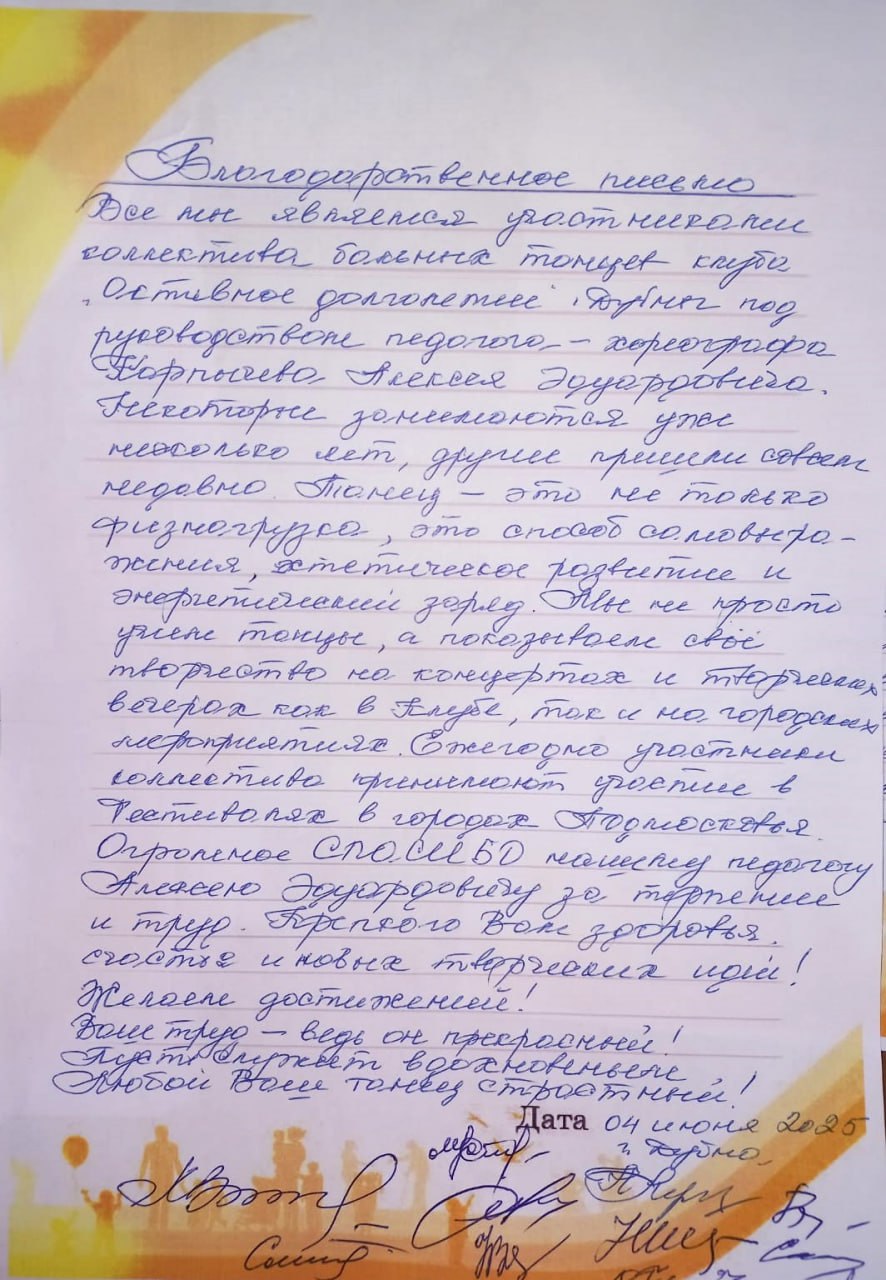 Благодарственное письмо
Все мы являемся участниками
коллектива бальных танцев клуба
"Активное долголетие" Дубны под
руководством педагога – хореографа
Карпычева Алексея Эдуардовича.
Некоторые занимаются уже
несколько лет, другие пришли совсем
недавно. Танец – это не только
физнагрузка, это способ самовыра-
жения, эстетическое развитие и
энергетический заряд. Мы не просто
учим танцы, а показываем своё
творчество на концертах и творческих
вечерах как в Клубе, так и на городских
мероприятиях. Ежегодно участники
коллектива принимают участие в
Фестивалях в городах Подмосковья.
Огромное СПАСИБО нашему педагогу
Алексею Эдуардовичу за терпение
и труд. Крепкого Вам здоровья,
счастья и новых творческих идей!
Желаем достижений!
Ваш труд – ведь он прекрасный!
Пусть служит вдохновеньем
Любой Ваш танец страстный!
Дата 04 июня 2025
г. Дубна.